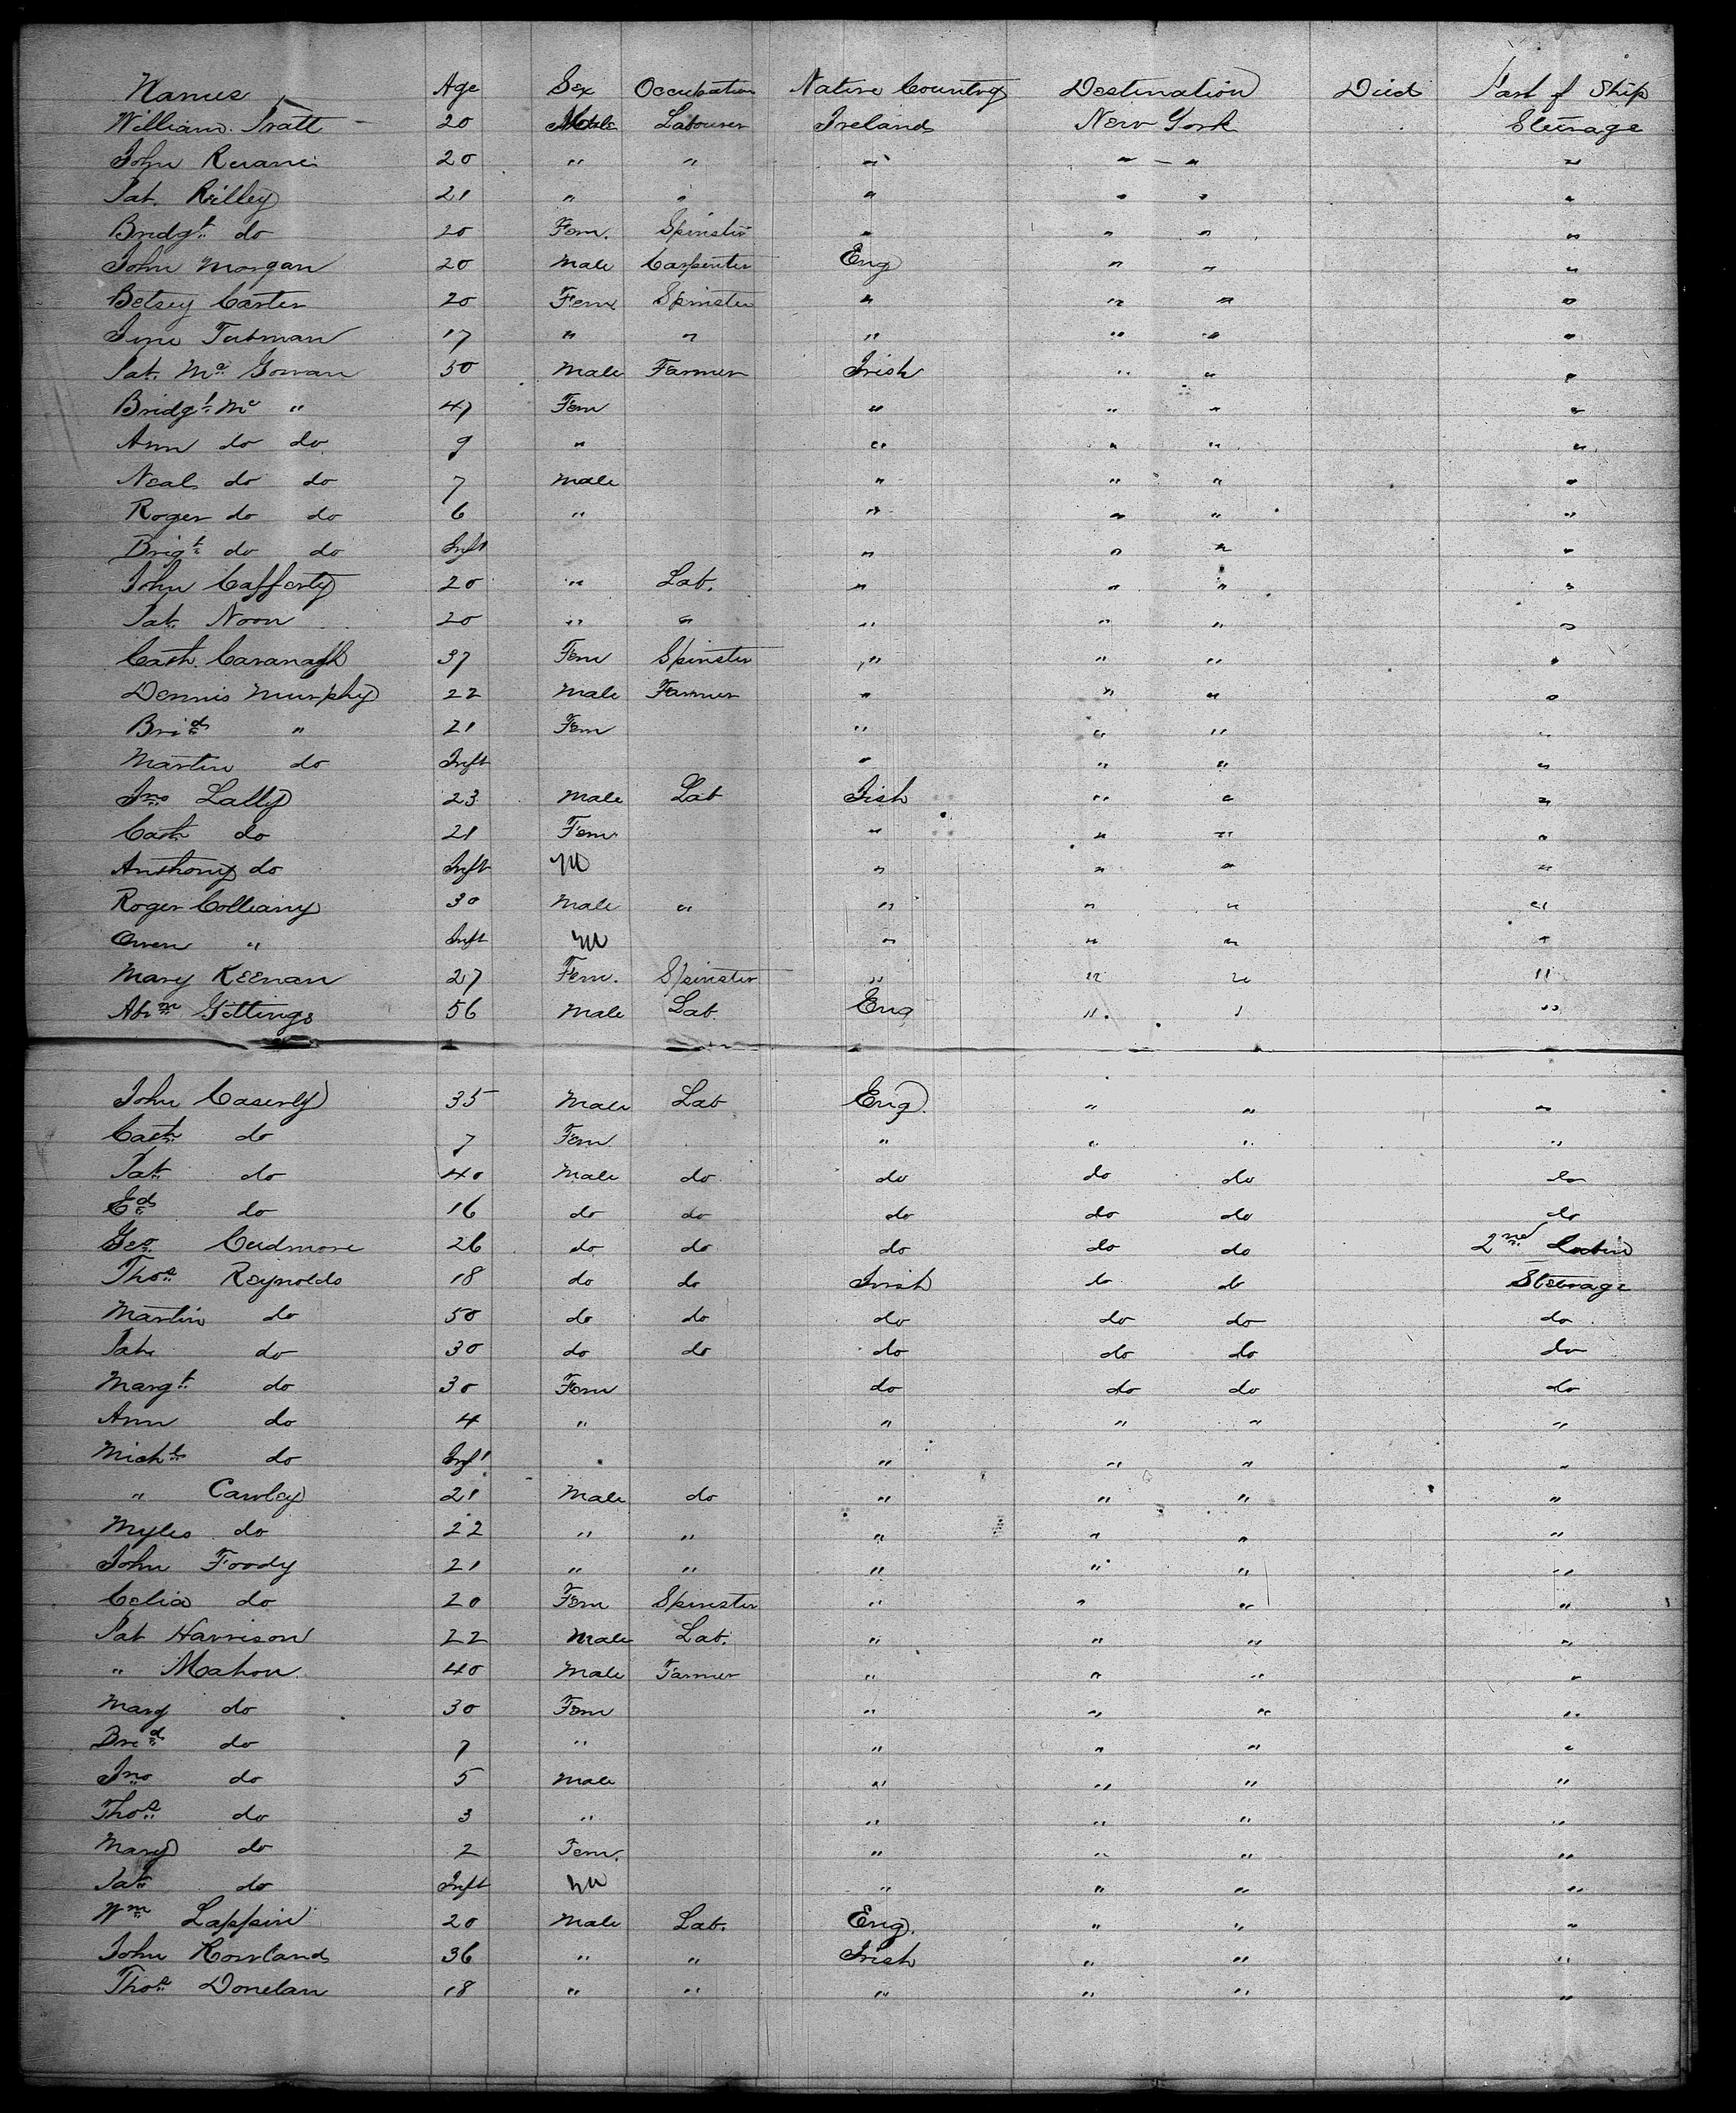 Names Age Sex Occupation Native Country Destination Died Part of Ship
William Pratt 20 Male Labourer Ireland New York Steerage
John Ruane 20 " " " " " "
Pat. Reilley 21 " " " " " "
Bridgt do 20 Fem. Spinster " " " "
John Morgan 20 Male Carpenter Eng " " "
Betsey Carter 20 Fem Spinster " " " "
Jane Tubman 17 " " " " " "
Pat. Mc Gowan 50 Male Farmer Irish " " "
Bridgt Mc " 47 Fem " " " "
Ann do do 9 " " " " "
Neal do do 7 Male " " " "
Roger do do 6 " " " " "
Brigt do do Inft " " " "
John Cafferty 20 " Lab. " " " "
Pat. Noon 20 " " " " " "
Cath. Cavanagh 37 Fem Spinster " " " "
Dennis Murphy 22 Male Farmer " " " "
Brid " 21 Fem " " " "
Martin do Inft " " " "
Jno Lally 23 Male Lab Iish " " "
Cath do 21 Fem " " " "
Anthony do Inft M " " " "
Roger Colleany 30 Male " " " " "
Owen " Inft M " " " "
Mary Keenan 27 Fem. Spinster " " " "
Abm Gittings 56 Male Lab. Eng " " "
John Caserly 35 Male Lab Eng. " " "
Cath do 7 Fem " " " "
Pat do 40 Male do do do do do
Ed do 16 do do do do do do
Geo Cudmore 26 do do do do do 2nd Cabin
Thos Reynolds 18 do do Irish do do Steerage
Martin do 50 do do do do do do
Pat. do 30 do do do do do do
Margt do 30 Fem do do do do
Ann do 4 " " " " "
Michl do Inft " " " "
" Cawley 21 Male do " " " "
Myles do 22 " " " " " "
John Foody 21 " " " " " "
Celia do 20 Fem Spinster " " " "
Pat Harrison 22 Male Lab. " " " "
" Mahon 40 Male Farmer " " " "
Mary do 30 Fem " " " "
Brid do 7 " " " " "
Jno do 5 Male " " " "
Thos do 3 " " " " "
Mary do 2 Fem. " " " "
Pat do Inft M " " " "
Wm Lappin 20 Male Lab. Eng. " " "
John Rowland 36 " " Irish " " "
Thos Donelan 18 " " " " " "